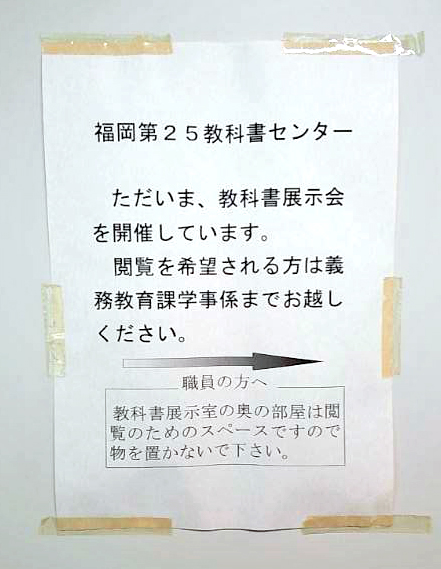 福岡第２５教科書センター
ただいま、教科書展示会
を開催しています。
閲覧を希望される方は義
務教育課学事係までお越し
ください。
職員の方へ
教科書展示室の奥の部屋は閲
覧のためのスペースですので
物を置かないで下さい。